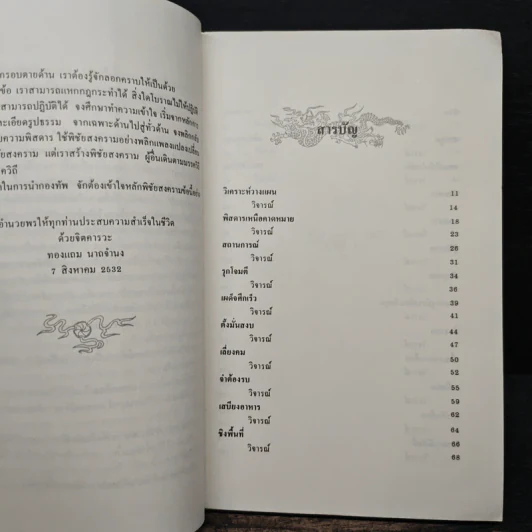 กรอบตายด้าน เราต้องรู้จักลอกคราบให้เป็นด้วย
ข้อ เราสามารถแหกกฎกระทำได้ สิ่งใดโบราณไม่ให้ปฏิบัติ
สามารถปฏิบัติได้ จงศึกษาทำความเข้าใจ เริ่มจากหลักการ
ละเอียดรูปธรรม จากเฉพาะด้านไปสู่ทั่วด้าน จงพลิกแพลง
ยความพิสดาร ใช้พิชัยสงครามอย่างพลิกแพลงแปลงเปลี่ยน
ชัยสงคราม แต่เราสร้างพิชัยสงคราม ผู้อื่นเดินตามมรรควิถี
ควิถี
ในการนำกองทัพ จักต้องเข้าใจหลักพิชัยสงครามข้อนี้อย่าง
อำนวยพรให้ทุกท่านประสบความสำเร็จในชีวิต
ด้วยจิตคารวะ
ทองแถม นาถจำนง
7 สิงหาคม 2532
สารบัญ
วิเคราะห์วางแผน 11
วิจารณ์ 14
พิสดารเหนือคาดหมาย 18
วิจารณ์ 23
สถานการณ์ 26
วิจารณ์ 31
รุกโจมตี 34
วิจารณ์ 36
เผด็จศึกเร็ว 39
วิจารณ์ 41
ตั้งมั่นสงบ 44
วิจารณ์ 47
เลี่ยงคม 50
วิจารณ์ 52
จำต้องรบ 55
วิจารณ์ 59
เสบียงอาหาร 62
วิจารณ์ 64
ชิงพื้นที่ 66
วิจารณ์ 68